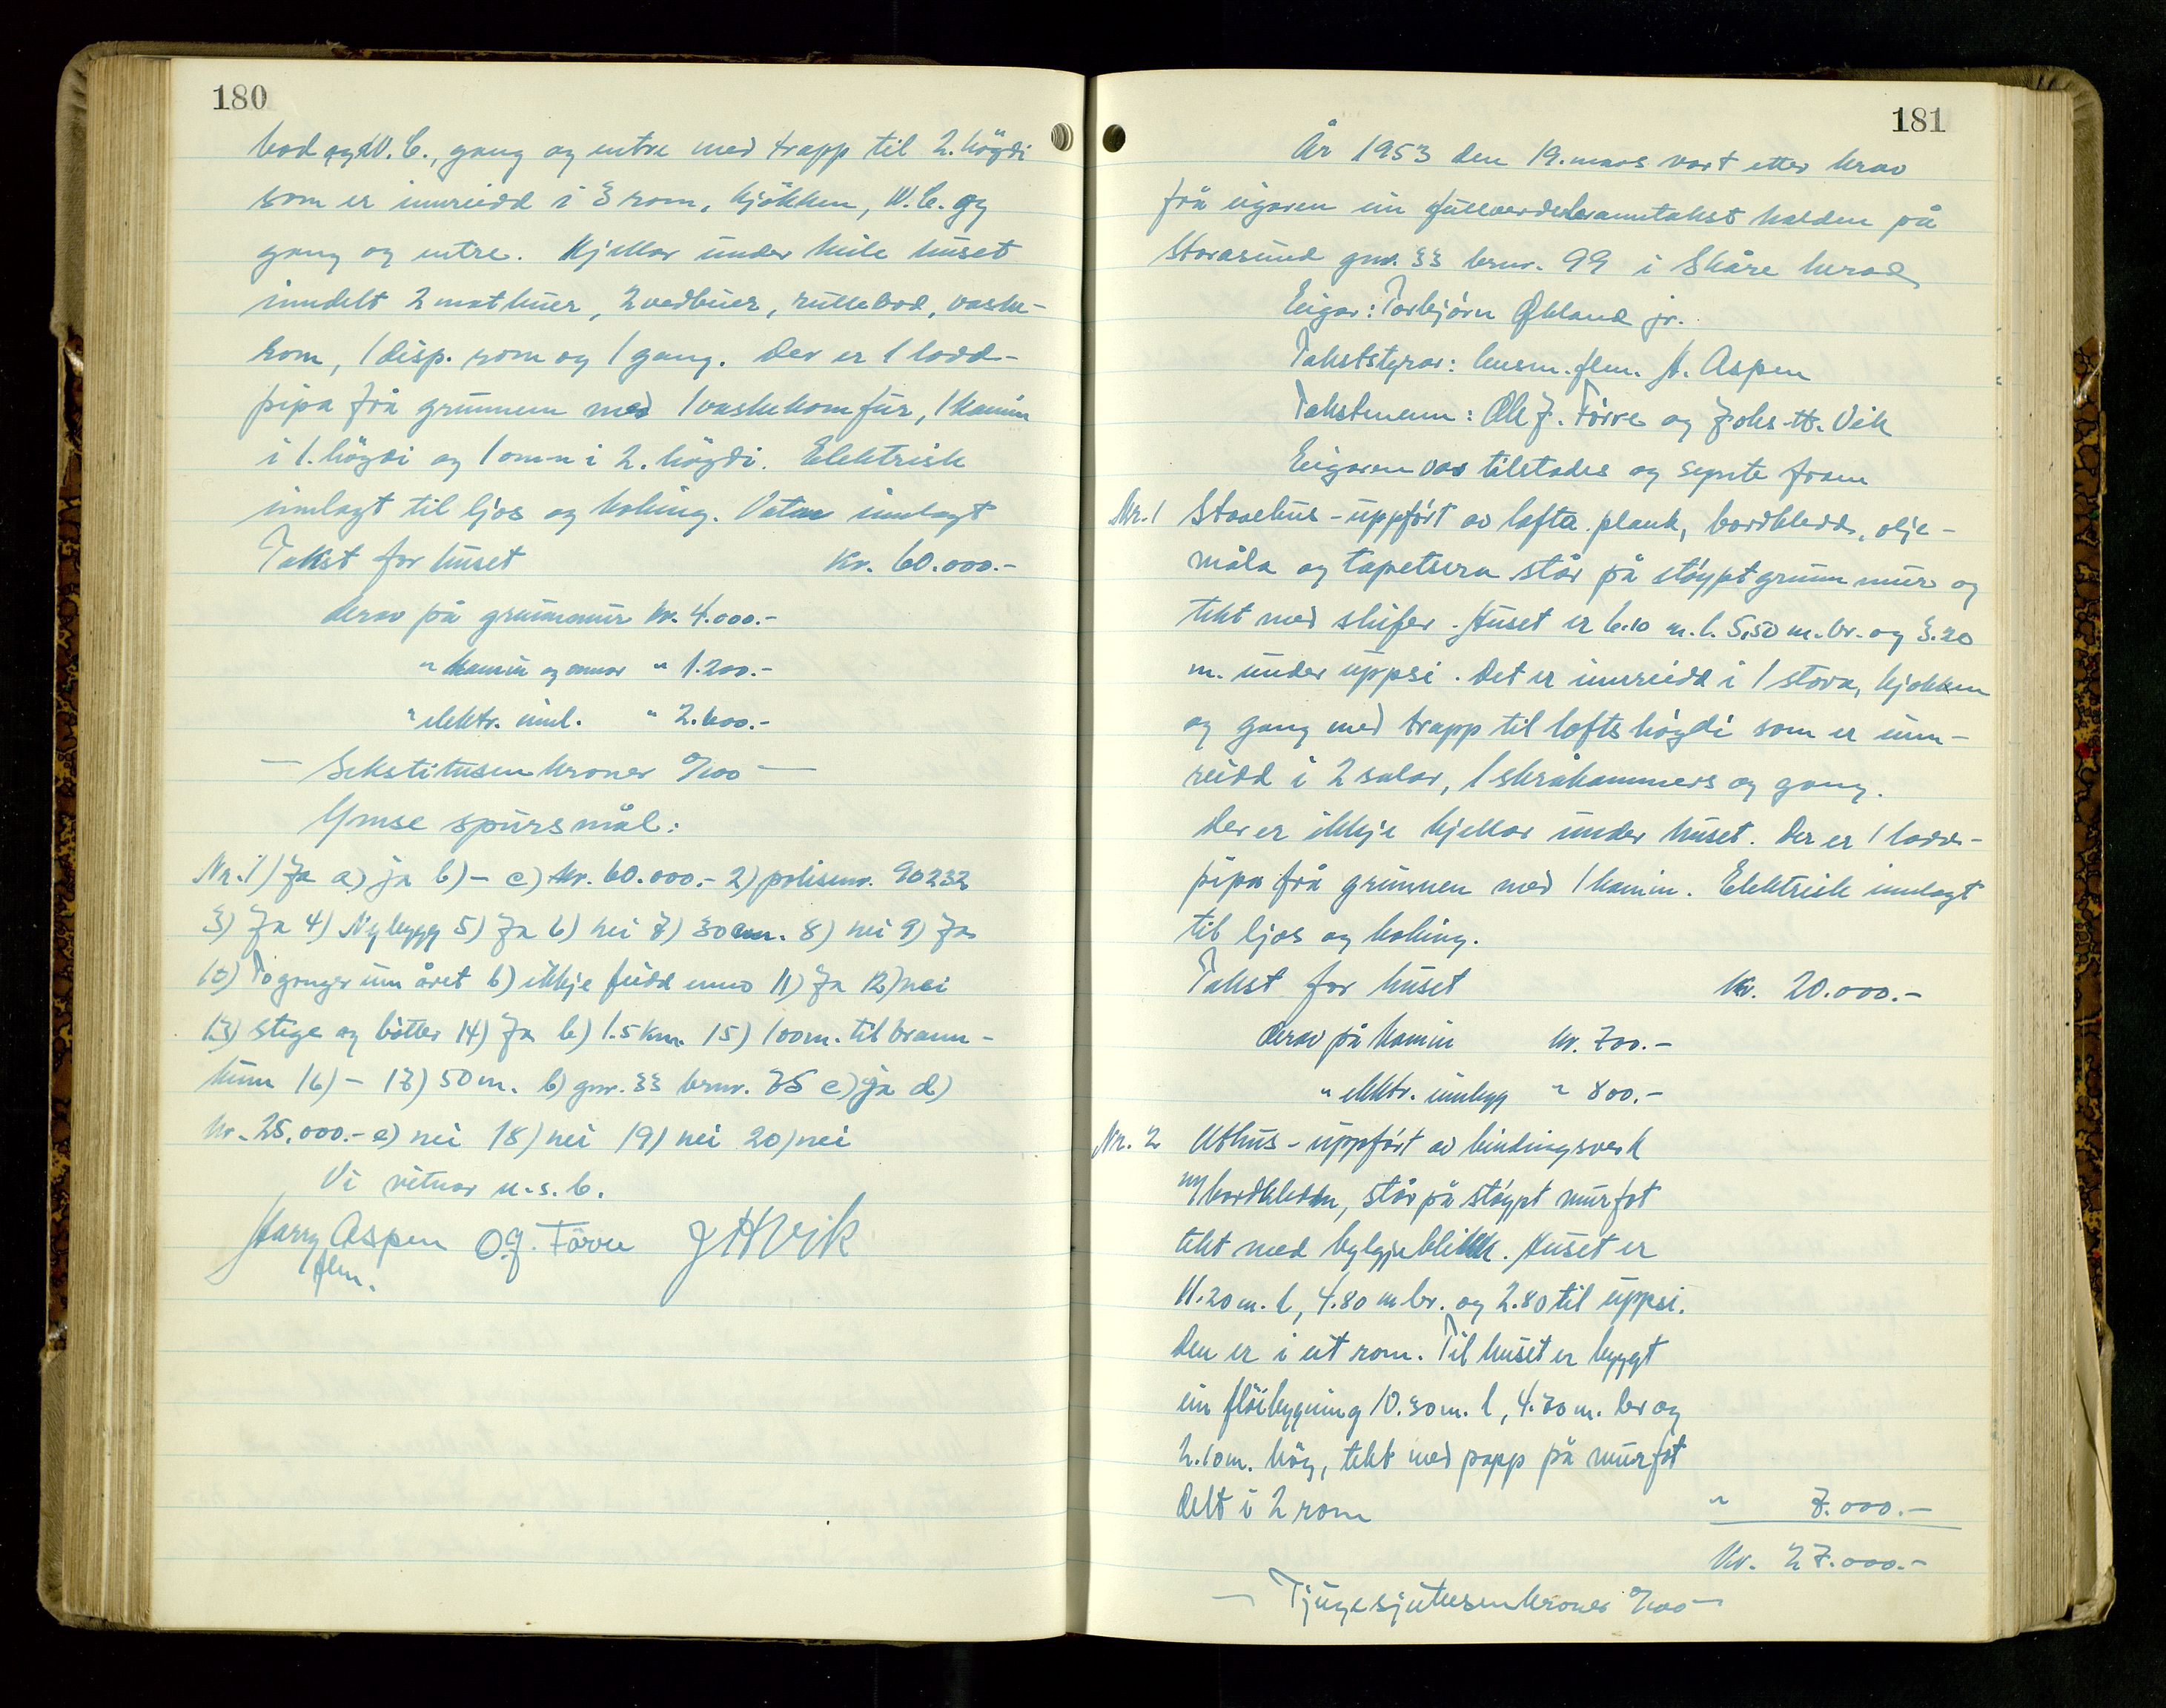 180
bod og W.C., gang og entre med trapp til 2. högdi
som er innreidd i 3 rom, kjökken, W.C. og
gang og entre. Kjellar under heile huset
inndelt 2 matbuer, 2 vedbuer, rullebod, vaske-
rom, 1 disp. rom og 1 gang. Der er 1 lodd-
pipa frå grunnen med 1 vaskekomfur, 1 kamin
i 1. högdi og 1 omn i 2. högdi. Elektrisk
innlagt til ljos og koking. Vatn innlagt
Takst for huset kr. 60.000.-
derav på grunnmur kr. 4.000.-
" kamin og omnar " 1.200.-
" elektr. innl. " 2.600.-
— Sekstitusen kroner 0/100 —
Ymse spursmål:
Nr. 1) Ja a) ja b) - c) kr. 60.000.- 2) polisenr. 90232
3) Ja 4) Nybygg 5) Ja 6) nei 7) 30 cm. 8) nei 9) Ja
10) To gonger um året b) ikkje feidd enno 11) Ja 12) nei
13) stige og bötter 14) Ja b) 1.5 km. 15) 100 m. til brann-
kum 16) - 17) 50 m. b) gnr. 33 brnr. 75 c) ja d)
kr. 25.000.- e) nei 18) nei 19) nei 20) nei
Vi vitnar u.s.b.
Harry Aspen O.J. Förre J H Vik
flm.
181
År 1953 den 19. mars vart etter krav
frå eigaren ein fullverdebranntakst halden på
Storasund gnr. 33 brnr. 99 i Skåre herad
Eigar: Torbjörn Økland jr.
Takststyrar: lensm. flm. H. Aspen
Takstmenn: Ole J. Förre og Johs H. Vik
Eigaren var tilstades og synte fram
Nr. 1 Stovehus - uppfört av lafta plank, bordkledd, olje-
måla og tapetsera står på stöypt grunnmur og
tekt med skifer. Huset er 6.10 m. l. 5,50 m. br. og 3.20
m. under uppsi. Det er innreidd i 1 stova, kjökken
og gang med trapp til loftshögdi som er inn-
reidd i 2 salar, 1 skråkammers og gang.
Der er ikkje kjellar under huset. Der er 1 lodd-
pipa frå grunnen med 1 kamin. Elektrisk innlagt
til ljos og koking.
Takst for huset kr. 20.000.-
derav på kamin kr. 700.-
" elektr. innlegg " 800.-
Nr. 2 Uthus - uppfört av bindingsverk
m/bordkledn, står på stöypt murfot
tekt med bylgjeblikk. Huset er
11.20 m. l, 4.80 m br. og 2.80 til uppsi.
Den er i eit rom. Til huset er bygt
ein flöibygning 10.30 m. l, 4.70 m. br og
2.10 m. hög, tekt med papp på murfot
delt i 2 rom " 7.000.-
kr. 27.000.-
— Tjugesjutusen kroner 0/100 —